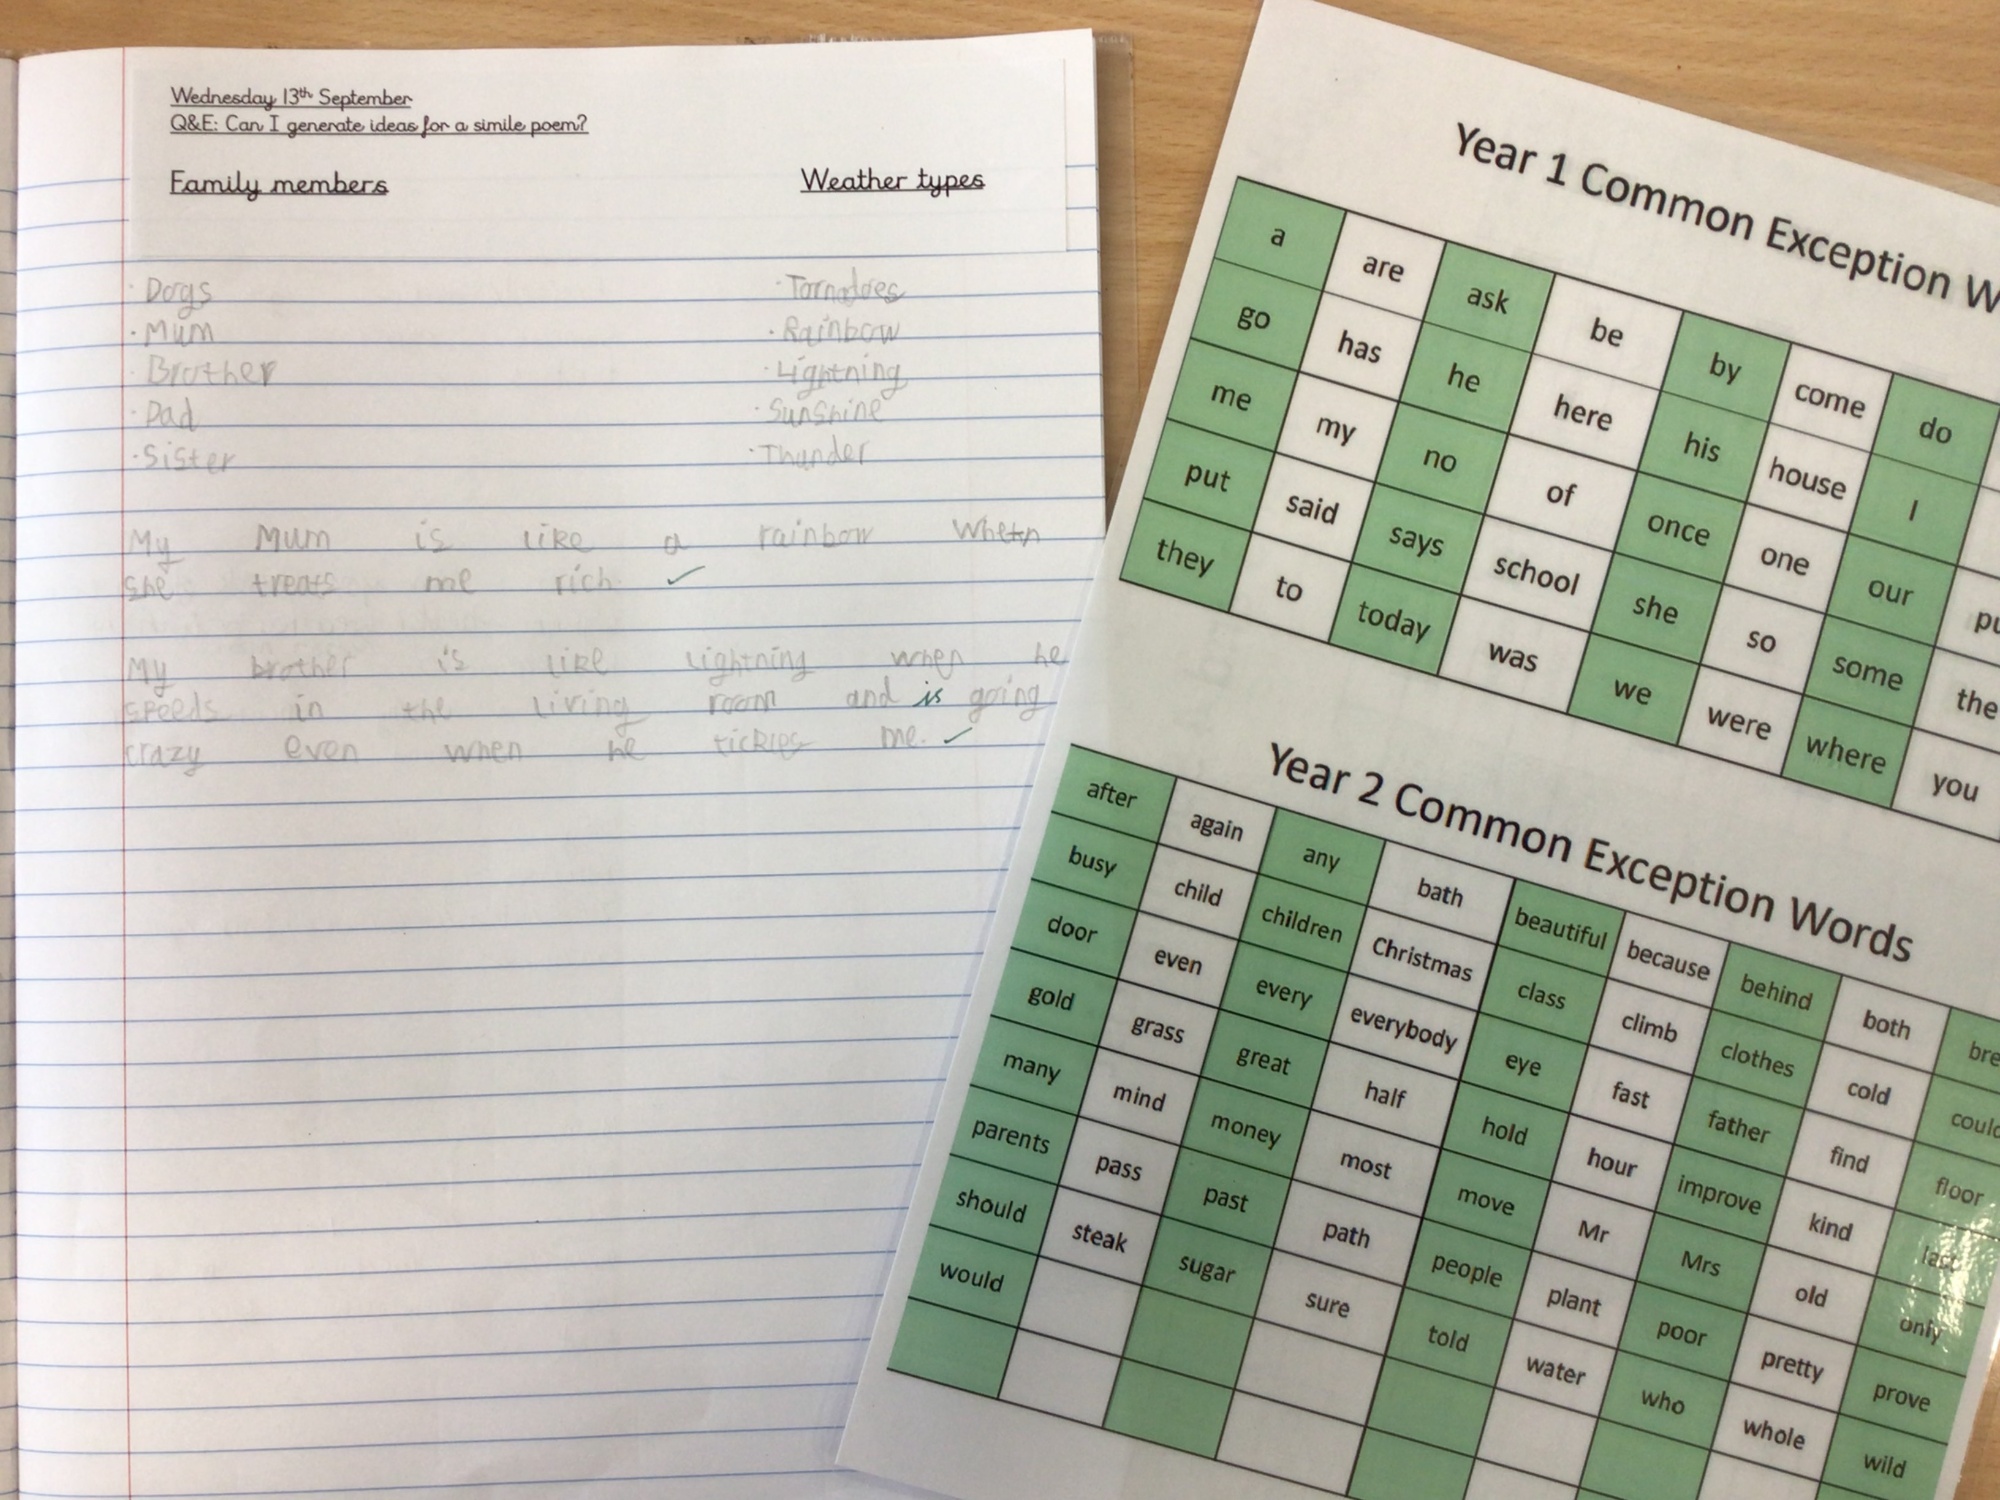 Wednesday 13th September
Q&E: Can I generate ideas for a simile poem?
Family members Weather types
· Dogs · Tornadoes
· Mum · Rainbow
· Brother · Lightning
· Dad · Sunshine
· Sister · Thunder
My Mum is like a rainbow when
she treats me rich ✓
My brother is like lightning when he
speeds in the living room and is going
crazy even when he tickles me. ✓
Year 1 Common Exception W
a are ask be by come do
go has he here his house I
me my no of once one our pu
put said says school she so some the
they to today was we were where you
Year 2 Common Exception Words
after again any bath beautiful because behind both bre
busy child children Christmas class climb clothes cold could
door even every everybody eye fast father find floor
gold grass great half hold hour improve kind last
many mind money most move Mr Mrs old only
parents pass past path people plant poor pretty prove
should steak sugar sure told water who whole wild
would